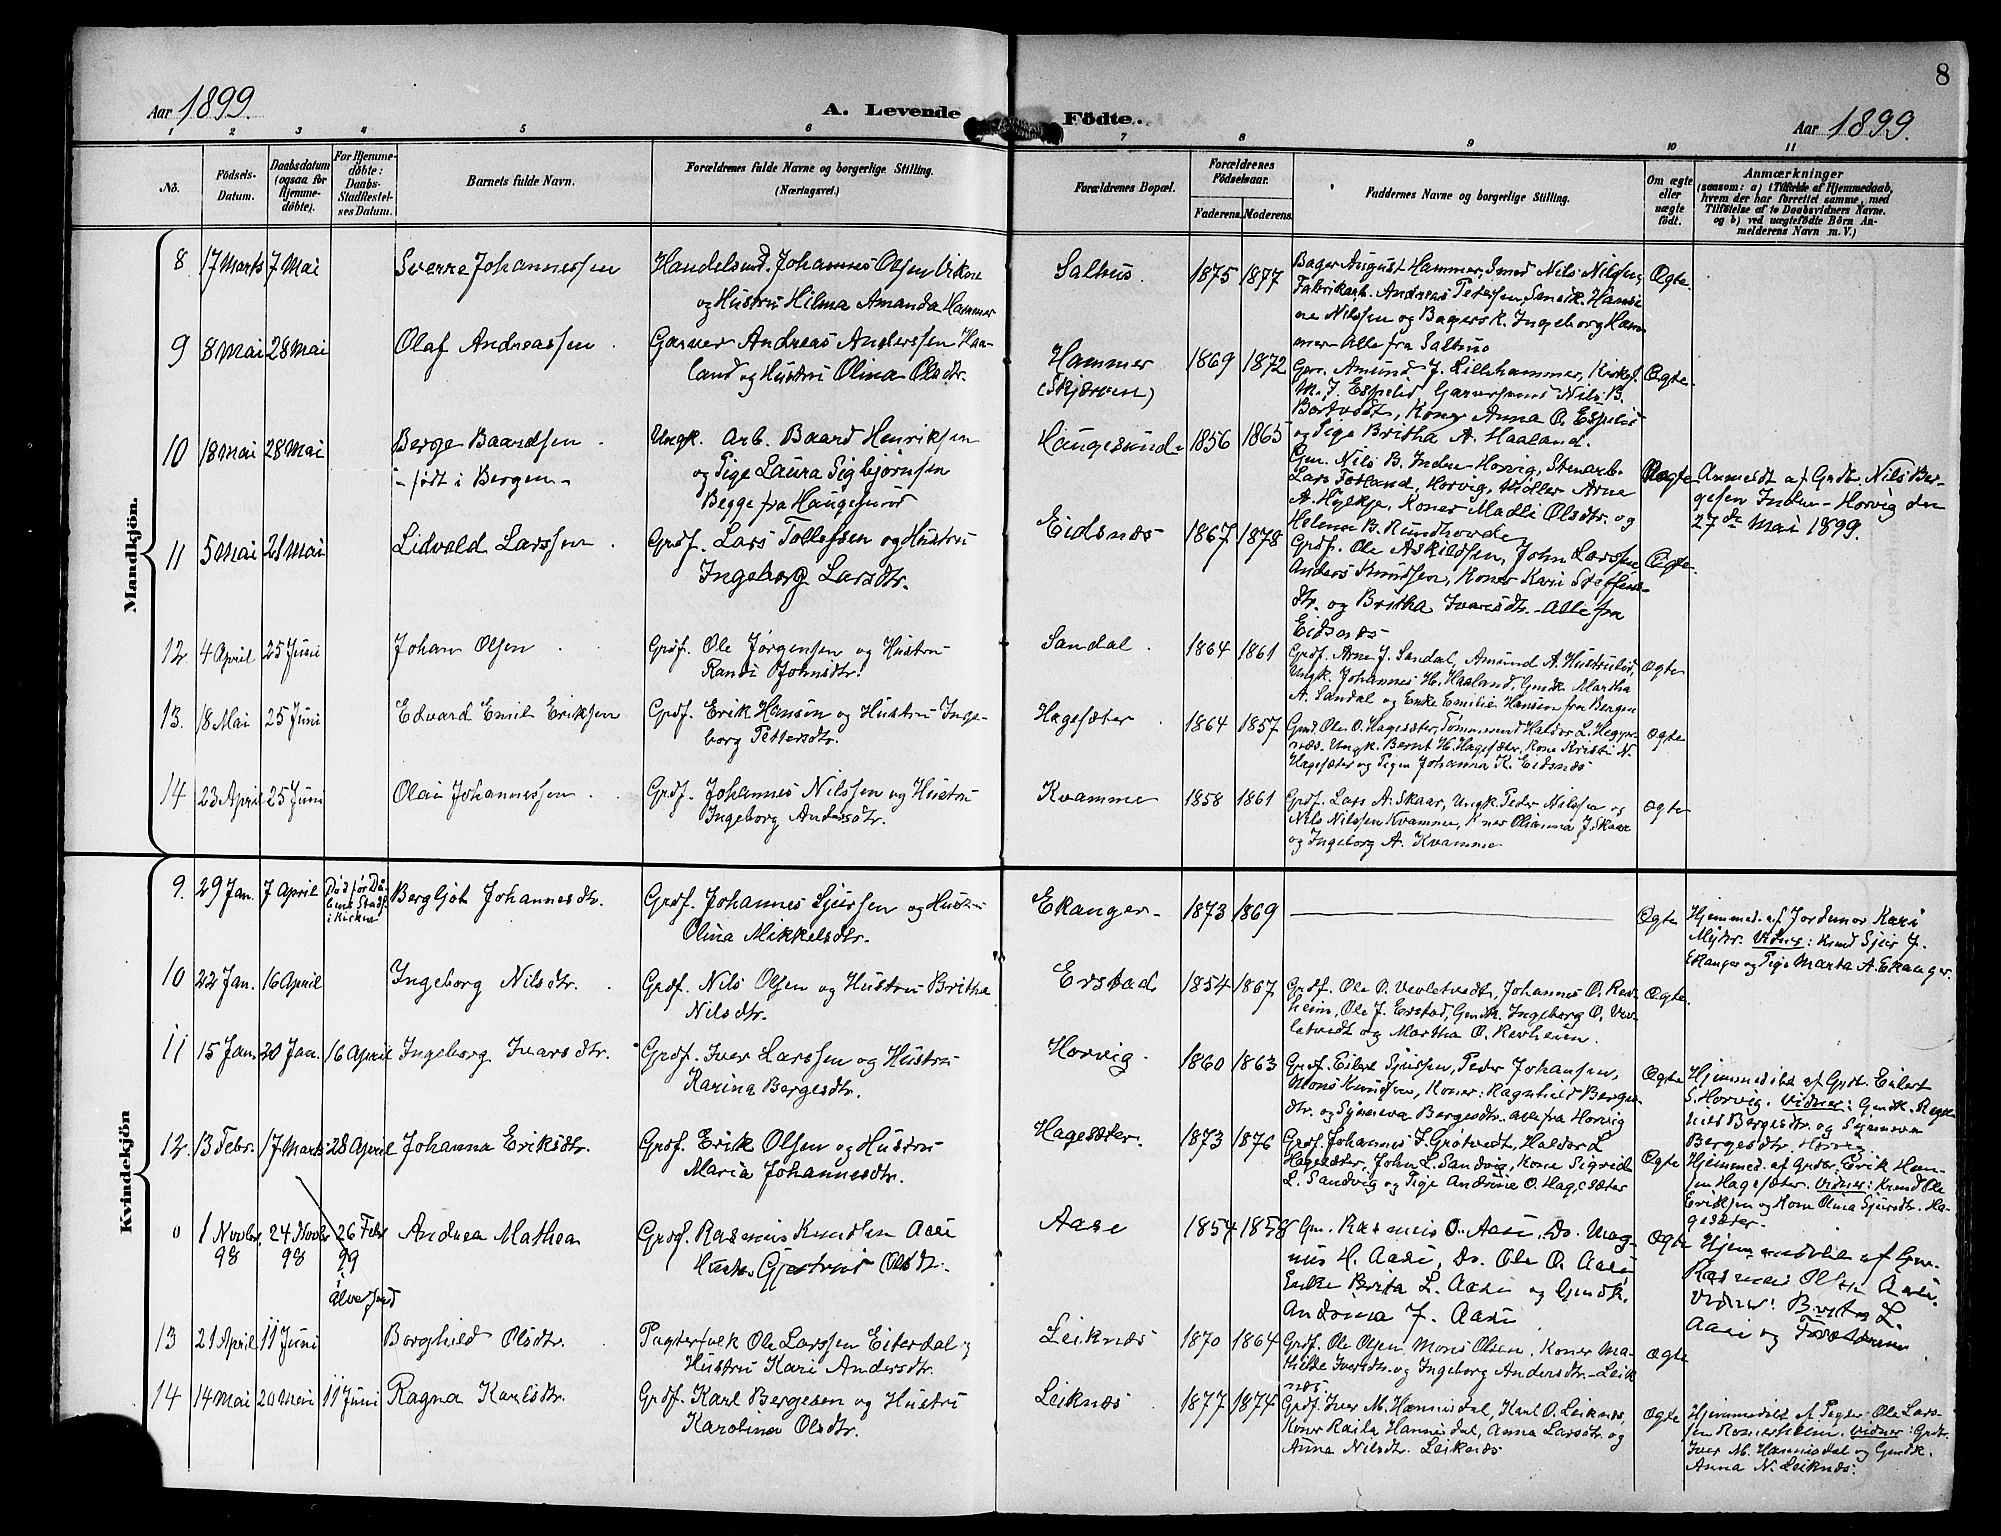 8
Aar 1899.
A. Levende Födte.
Aar 1899.
1 2 3 4 5 6 7 8 9 10 11
No.
Födsels-Datum.
Daabsdatum (ogsaa for Hjemmedöbte).
For Hjemmedöbte: Daabs-Stadfæstelses Datum.
Barnets fulde Navn.
Forældrenes fulde Navne og borgerlige Stilling.
(Næringsvei.)
Forældrenes Bopæl.
Forældrenes Födselsaar.
Faderens. Moderens.
Faddernes Navne og borgerlige Stilling.
Om ægte eller uægte födt.
Anmærkninger
(saasom: a) i Tilfælde af Hjemmedaab,
hvem der har forrettet samme, med
Tilföielse af to Daabsvidners Navne.
og b) ved uægtefödte Börn Anmelderens Navn m. V.)
Mandkjön.
8 17 Marts 7 Mai Sverre Johannessen Handelsmd. Johannes Olsen Vikne
og Hustru Hilma Amanda Hammer
Salhus. 1875 1877
Bager August Hammer, Smed Nils Nilsen,
Fabrikarb. Andreas Petersen, Smedk. Hansi-
ne Nilssen og Bagersk. Ingeborg Ham-
mer - Alle fra Salhus
Ægte.
9 8 Mai 28 Mai Olaf Andreassen Garver Andreas Anderssen Haa-
land og Hustru Olina Olsdtr.
Hammer
(Skjærven)
1869 1872
Gm. Amund J. Lillehammer, Kirkes.
M. J. Espelid Garversvend Nils B.
Botvedt, Koner Anna O. Espelid
og Pige Britha A. Haaland.
Ægte
10 18 Mai 28 Mai Berge Baardsen
- født i Bergen -
Ungk. Arb. Baard Henriksen
og Pige Laura Sigbjørnsen
Begge fra Haugesund
Haugesund 1856 1865
Gm. Nils B. Indre-Horvig, Stenarb.
Lars Totland, Horvig, Møller Arne
A. Hylkje, Koner Madli Olsdtr. og
Helena B. Rundhovde
Uægte
Anmeldt af Grdbr. Nils Ber-
gesen Indre-Horvig den
27de Mai 1899.
11 5 Mai 21 Mai Lidvald Larssen Grdf. Lars Tollefsen og Hustru
Ingeborg Larsdtr.
Eidsnæs 1867 1878
Grdf. Ole Askildsen, John Larssen
Anders Knudsen, Koner Kari Steffens-
dtr. og Britha Ivarsdtr. - Alle fra
Eidsnæs
Ægte.
12 4 April 25 Juni Johan Olsen Grdf. Ole Jørgensen og Hustru
Randi Johnsdtr.
Sandal. 1864 1861
Grdf. Arne J. Sandal, Amund A. Hustruled,
Ungk. Johannes H. Haaland, Gmdk. Martha
A. Sandal og Enke Emilie Hansen fra Bergen
Ægte
13. 18 Mai 25 Juni Edvard Emil Eriksen Grdf. Erik Hansen og Hustru Inge-
borg Pettersdtr.
Hagesæter 1864 1857
Gmd. Ole O. Hagesæter, Tømmermd Haldor L. Heggr-
næs. Ungk. Bernt H. Hagesæter, Kone Kristi N.
Hagesæter og Pigen Johanna K. Eidsnæs
Ægte
14 23 April 25 Juni Olai Johannessen Grdf. Johannes Nilssen og Hustru
Ingeborg Andersdtr.
Kvamme 1858 1861
Grdf. Lars A. Skaar, Ungk. Peder Nilssen og
Nils Nilssen Kvamme, Koner Olianna J. Skaar
og Ingeborg A. Kvamme
Ægte
Kvindekjön
9. 29 Jan. 7 April Død før Då-
bens Stadf.
i Kirken
Bergljot Johannesdtr. Grdf. Johannes Sjursen og Hustru
Olina Mikkelsdtr.
Ekanger 1873 1869
Ægte
Hjemmed. af Jordemor Kari
Myhr. Vidner: Knud Sjur J.
Ekanger og Pige Marta A. Ekanger.
10 22 Jan. 16 April Ingeborg Nilsdtr. Grdf. Nils Olsen og Hustru Britha
Nilsdtr.
Erstad 1854 1867
Grdf. Ole O. Vevletvedt, Johannes O. Rev-
heim, Ole J. Erstad, Gmdk. Ingeborg O. Vev-
letvedt og Martha O. Revheim.
Ægte
11 15 Jan. 20 Jan. 16 April Ingeborg Ivarsdtr. Grdf. Iver Larssen og Hustru
Karina Bergesdtr.
Horvig. 1860 1863
Grdf. Eilert Sjursen, Peder Johansen,
Mons Knudsen, Koner: Ragnhild Berges-
dtr. og Synneva Bergesdtr. alle fra Horvig
Ægte
Hjemmedøbt af Grdbr. Eilert
S. Horvig. Vidner: Gmdk. Ragn-
hild Bergesdtr. og Synneva
Bergesdtr. Horvig.
12 13 Febr. 17 Marts 28 April Johanna Eriksdtr. Grdf. Erik Olsen og Hustru
Maria Johannesdtr.
Hagesæter. 1873 1876
Grdf. Johannes I. Grøtvedt, Haldor L
Hagesæter, John L. Sandvig, Kone Sigrid
L. Sandvig og Pige Andrine O. Hagesæter
Ægte
Hjemmed. af Grdbr. Erik Han-
sen Hagesæter. Vidner: Knud Ole
Eriksen og Kone Olina Sjursdtr. Ha-
gesæter.
0 1 Novbr. 98 24 Novbr 98 26 Febr 99
i
Alversund
Andrea Mathea Grdf. Rasmus Knudsen Aase
Hustr. Gjertrud Olsdtr.
Aase 1854 1858
Gm. Rasmus O. Aase, Do. Mag-
nus H. Aase, Do. Ole O. Aase
Enke Brita L. Aase og Gmdk.
Andrina J. Aase
Ægte
Hjemmedøbt af Gm.
Rasmus Olsen Aase.
Vidner: Brita L.
Aase og Forældrene
13 21 April 11 Juni Borghild Olsdtr. Pagterfolk Ole Larssen Eiterdal og
Hustru Kari Andersdtr.
Leiknæs 1870 1864
Grdf. Ole Olsen, Mons Olsen, Koner Ma-
thilde Iversdtr. og Ingeborg Andersdtr. - Leik
næs.
Ægte
14 14 Mai 20 Mai 11 Juni Ragna Karlsdtr. Grdf. Karl Bergesen og Hustru
Karolina Olsdtr.
Leiknæs 1877 1874
Grdf. Iver M. Hannisdal, Karl O. Leiknæs,
Koner Raila Hannisdal, Anna Larsdtr. og
Anna Nilsdtr. Leiknæs
Ægte
Hjemmedøbt af Pagter Ole Lars-
sen Romerheim. Vidner: Grdbr.
Iver M. Hannisdal og Gmdk.
Anna N. Leiknæs.